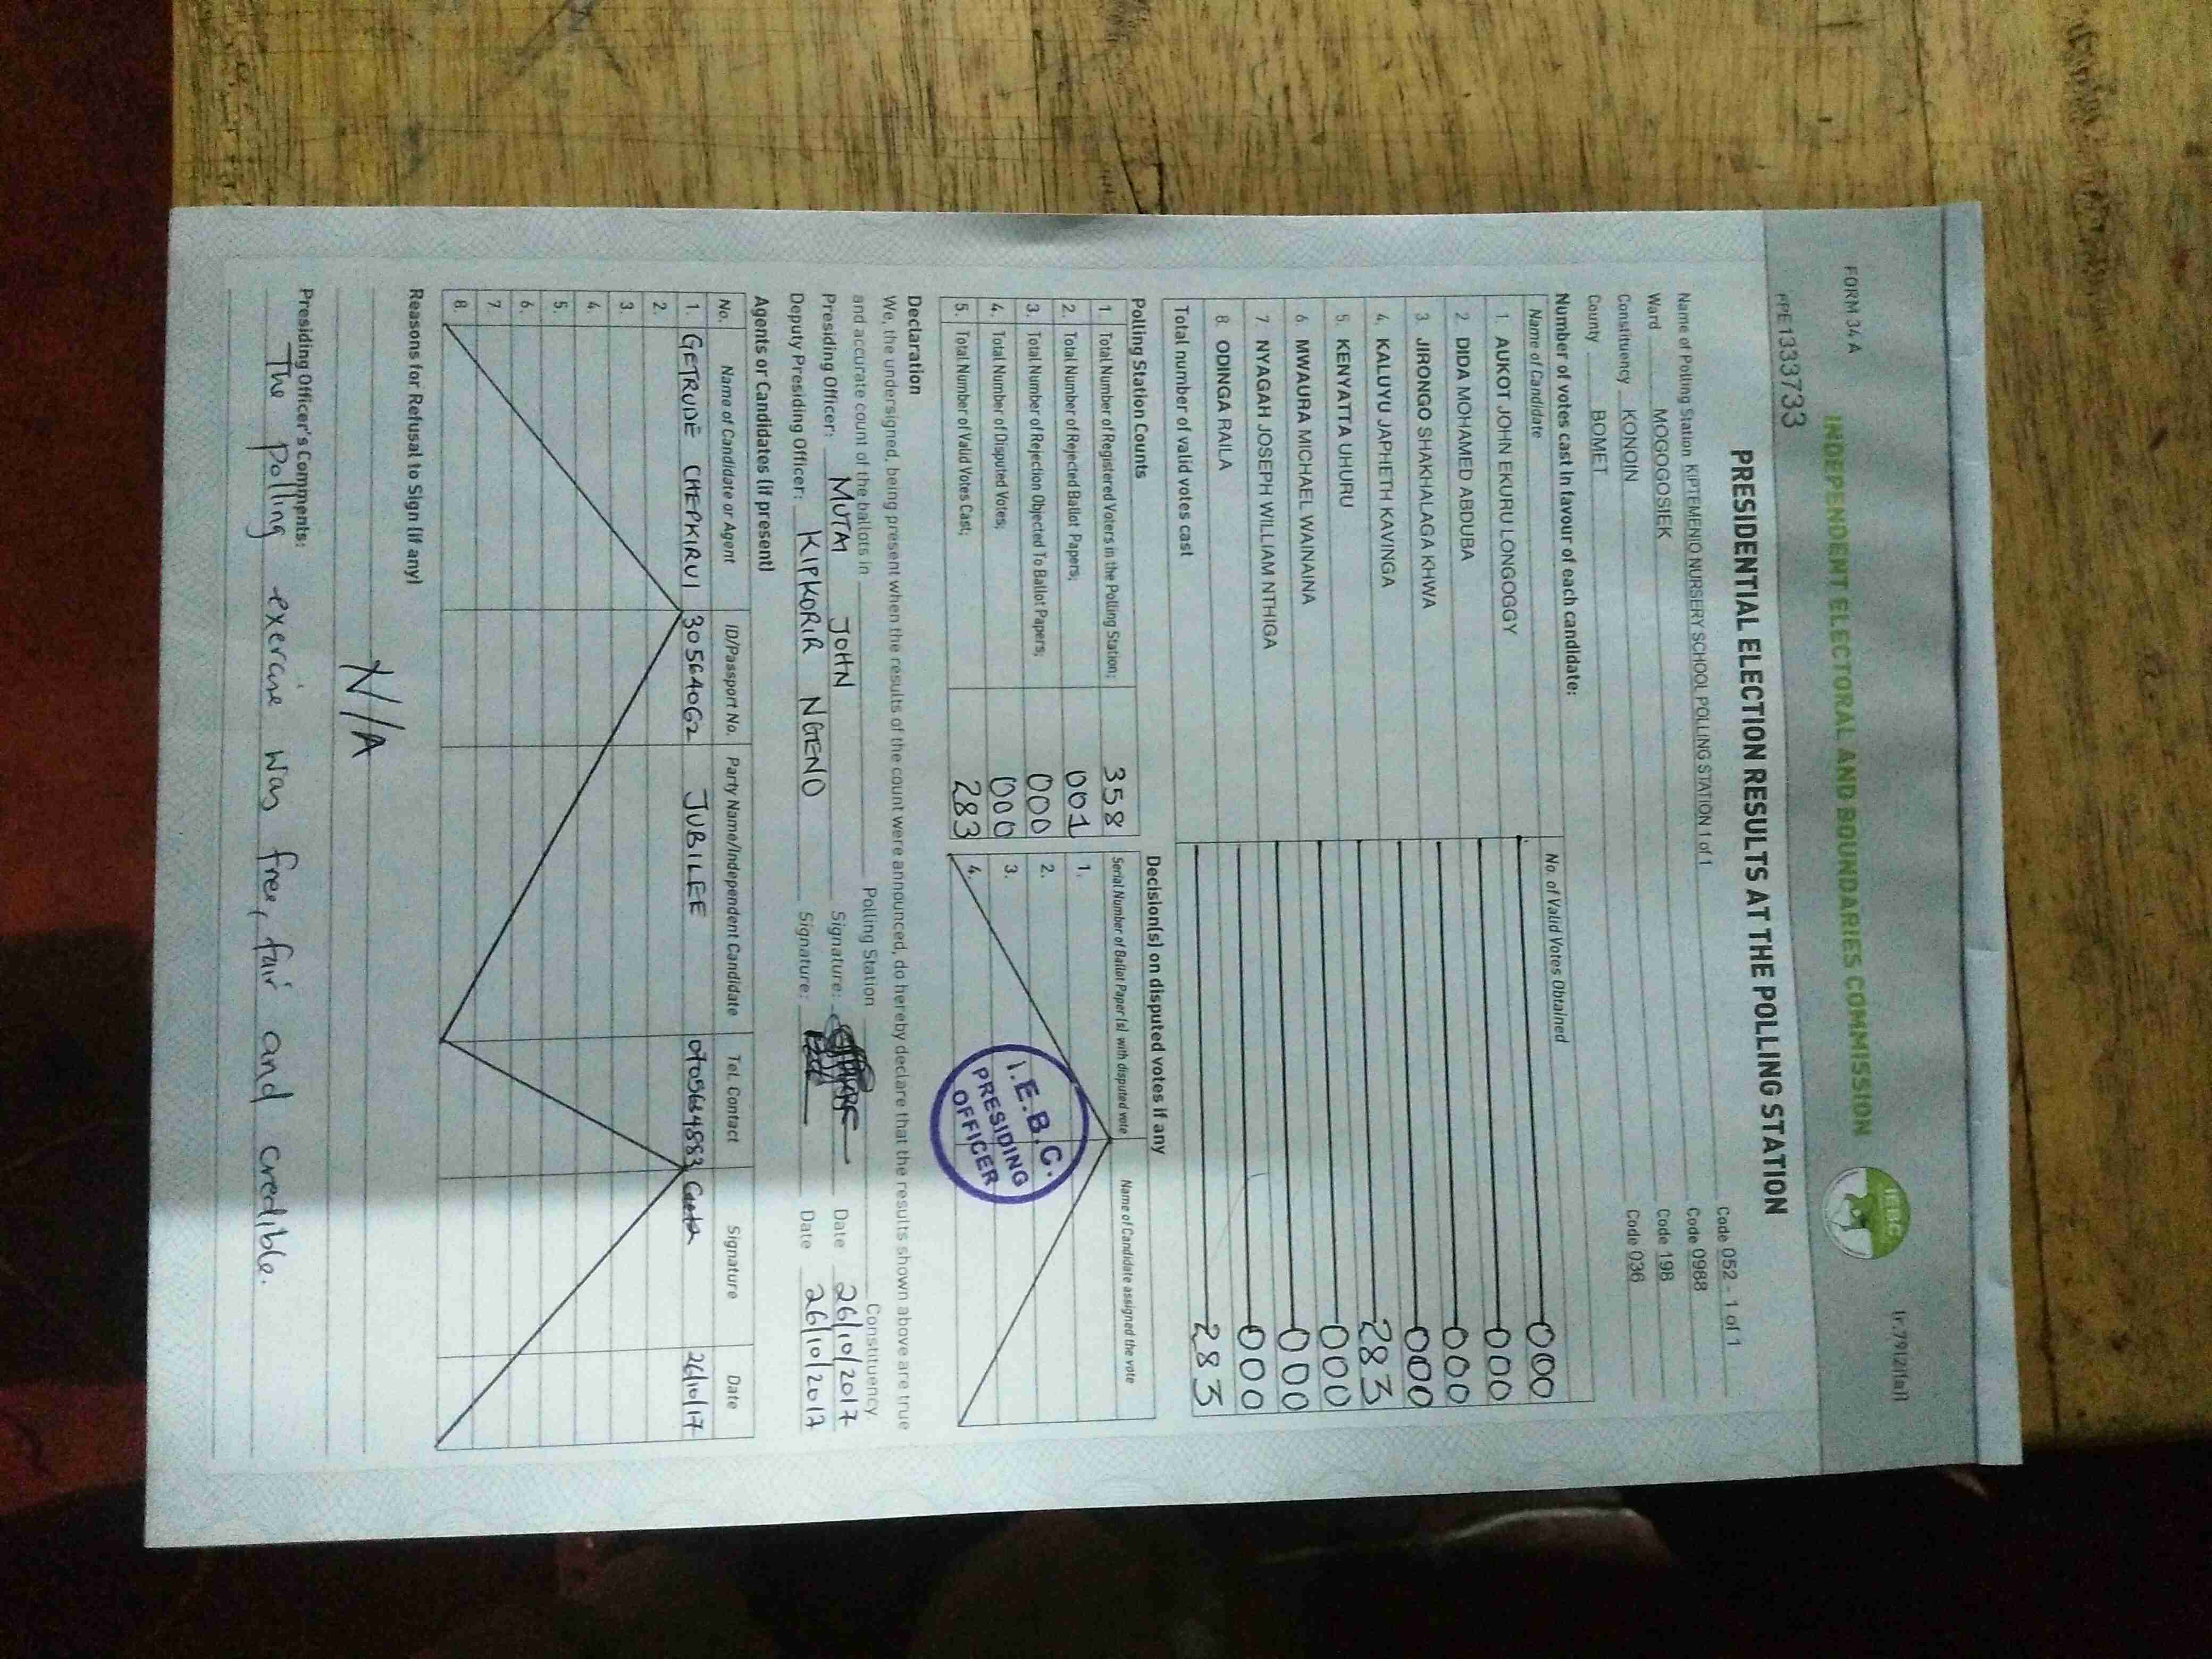 FORM 34 A
Ir.7912(1a)]
INDEPENDENT ELECTORAL AND BOUNDARIES COMMISSION
IEBC
PPE1333733
PRESIDENTIAL ELECTION RESULTS AT THE POLLING STATION
Name of Polling Station KIPTEMENIO NURSERY SCHOOL POLLING STATION 1 of 1 Code 052 - 1 of 1
Ward MOGOGOSIEK Code 0988
Constituency KONOIN Code 198
County BOMET Code 036
Number of votes cast in favour of each candidate:
Name of Candidate No. of Valid Votes Obtained
1. AUKOT JOHN EKURU LONGOGGY 000
2. DIDA MOHAMED ABDUBA 000
3. JIRONGO SHAKHALAGA KHWA 000
4. KALUYU JAPHETH KAVINGA 000
5. KENYATTA UHURU 283
6. MWAURA MICHAEL WAINAINA 000
7 NYAGAH JOSEPH WILLIAM NTHIGA 000
8. ODINGA RAILA 000
Total number of valid votes cast 283
Polling Station Counts
1 Total Number of Registered Voters in the Polling Station; 358
2. Total Number of Rejected Ballot Papers; 001
3. Total Number of Rejection Objected To Ballot Papers; 000
4. Total Number of Disputed Votes; 000
5. Total Number of Valid Votes Cast; 283
Decision(s) on disputed votes if any
Serial Number of Ballot Paper(s) with disputed vote Name of Candidate assigned the vote
1.
2.
3.
4.
I.E.B.C.
PRESIDING
OFFICER
Declaration
We, the undersigned, being present when the results of the count were announced, do hereby declare that the results shown above are true
and accurate count of the ballots in Polling Station Constituency
Presiding Officer: MUTAI JOHN Signature: Date 26/10/2017
Deputy Presiding Officer: KIPKORIR NGENO Signature: Date 26/10/2017
Agents or Candidates (if present)
No. Name of Candidate or Agent ID/Passport No. Party Name/Independent Candidate Tel. Contact Signature Date
1. GETRUDE CHEPKIRUI 30564062 JUBILEE 0705634883 26/10/17
2.
3.
4.
5.
6.
7.
8.
Reasons for Refusal to Sign (if any)
N/A
Presiding Officer's Comments:
The polling exercise was free, fair and credible.